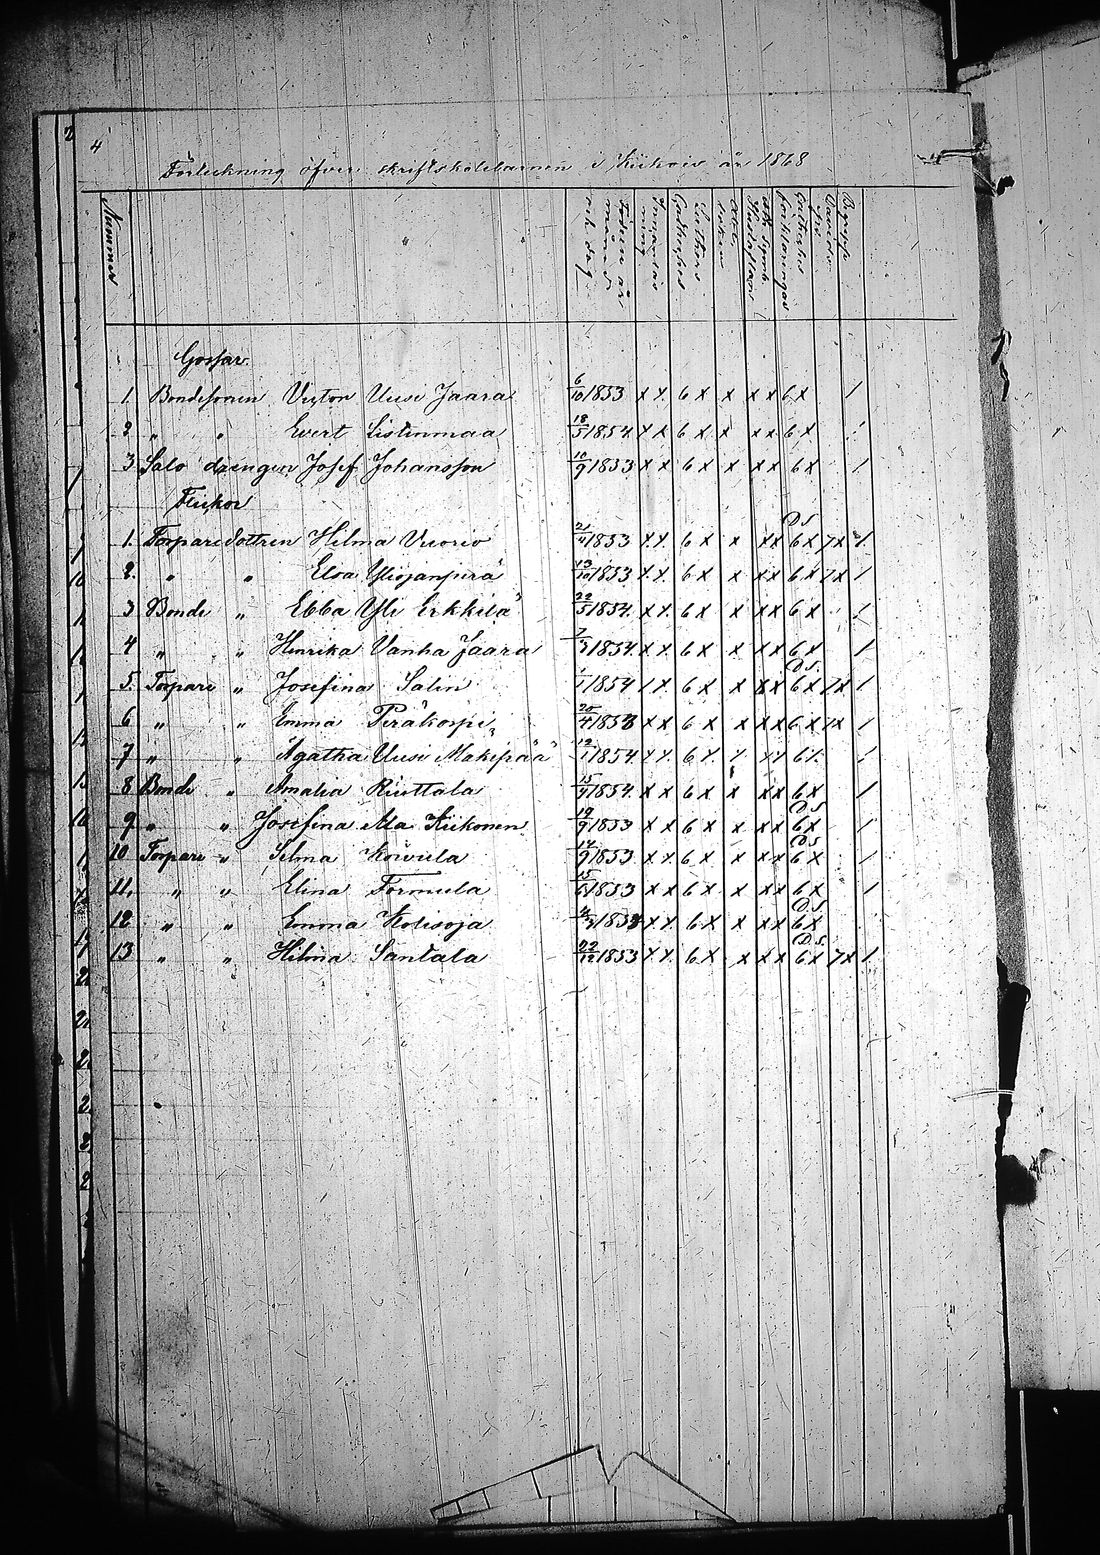 4
Förteckning öfver skriftskolebarnen i Kiikois år 1868
Nummer
Gossar.
1. Bondesonen Victor Uusi Jaara 6/10 1853 x x 6 x x x x 6 x 1
2 " " Evert Listinmaa 18/5 1854 x x 6 x x x x 6 x 1
3 Salo drängen Josef Johansson 10/9 1853 x x 6 x x x x 6 x 1
Flickor
1. Torparedottren Hilma Vuorio 21/4 1853 x x 6 x x x x 6 x 7 x 1
2. " " Elsa Yliojanperä 13/10 1853 x x 6 x x x x 6 x 7 x 1
3 Bonde " Ebba Yli Erkkilä 22/5 1854 x x 6 x x x x 6 x 1
4 " " Henrika Vanha Jaara 7/3 1854 x x 6 x x x x 6 x 1
5. Torpare " Josefina Salin 1854 x x 6 x x 8 x 6 x 7 x 1
6 " " Emma Peräkorpi 20/4 1853 x x 6 x x x x 6 x 7 x 1
7 " " Agatha Uusi Mäkipää 12/1 1854 x x 6 x x x x 6 x 1
8 Bonde " Amalia Riuttala 15/4 1854 x x 6 x x x x 6 x 1
9 " " Josefina Ala Kiikonen 19/9 1853 x x 6 x x x x 6 x 1
10 Torpare " Selma Koivula 14/9 1853 x x 6 x x x x 6 x 1
11. " " Elina Formula 15/6 1853 x x 6 x x x x 6 x 1
12 " " Emma Kotisoja 1853 x x 6 x x x x 6 x
13 " " Hilma Santala 22/12 1853 x x 6 x x x x 6 x 7 x 1